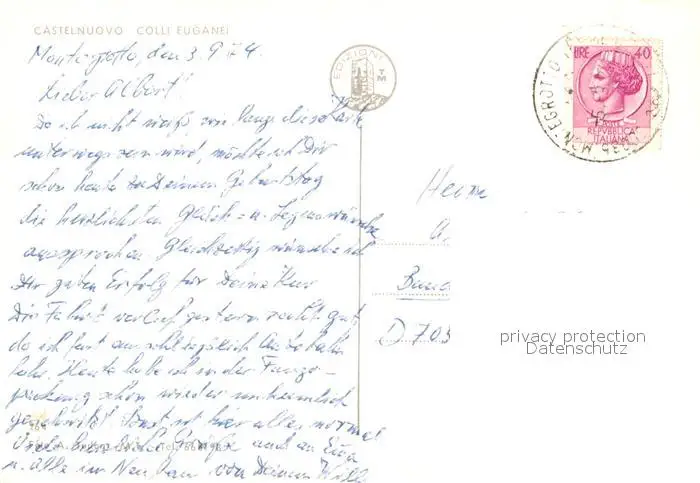 CASTELNUOVO COLLI EUGANEI
Montegrotto, den 3.9.74.
Lieber Albert!
Da ich nicht weiß, wie lange diese Karte
unterwegs sein wird, möchte ich Dir
schon heute zu Deinem Geburtstag
die herzlichsten Glück- u. Segenswünsche
aussprechen. Gleichzeitig wünsche ich
Dir guten Erfolg für Deine Kur
Die Fahrt verlief gestern recht gut,
da ich fast ausschließlich Autobahn
fuhr. Heute habe ich in der Fango-
packung schon wieder unheimlich
geschwitzt. Sonst ist hier alles normal
Viele herzliche Grüße auch an
u. alle im Neubau von Deinem Willi
EDIZIONI
TM
LIRE 40
POSTE
REPVBBLICA
ITALIANA
MONTEGROTTO
Herrn
D 703
privacy protection
Datenschutz